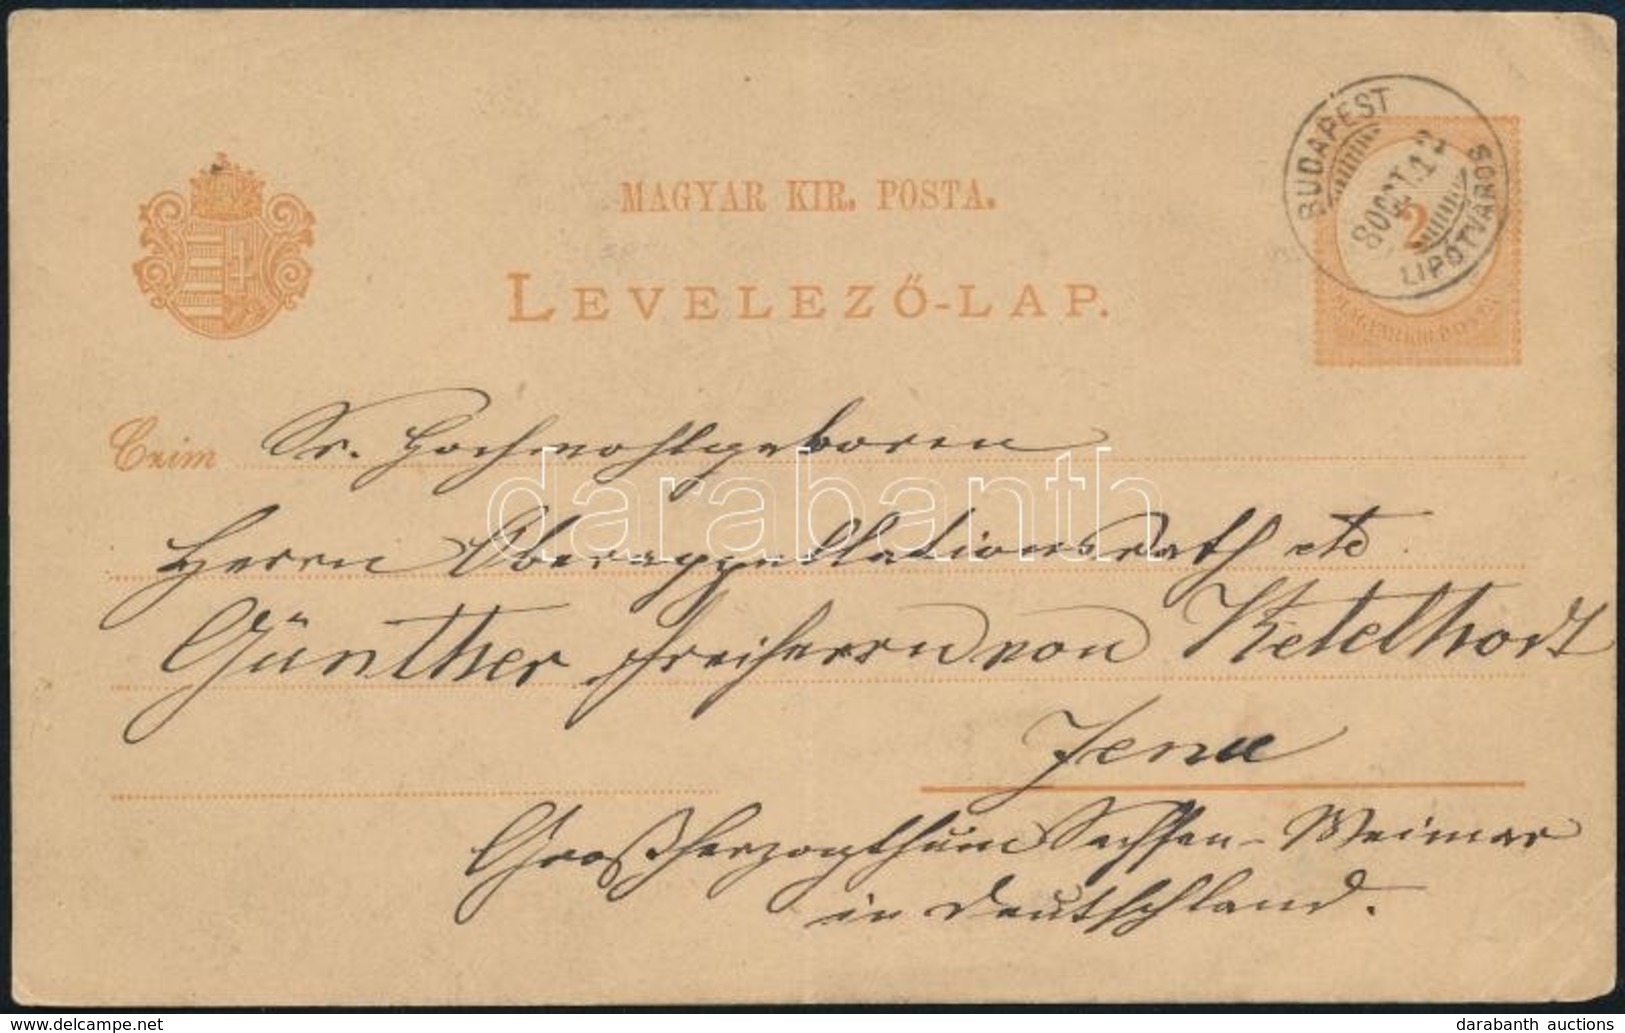 BUDAPEST
80 OCT. 12
LIPÓTVÁROS
MAGYAR KIR. POSTA.
2
LEVELEZŐ-LAP.
MAGYAR KIR. POSTA
Czim Sr. Hochwohlgeboren
Herrn Oberappellationsrath etc
Günther Freiherrn von Ketelhodt
Jena
Großherzogthum Sachsen-Weimar
in Deutschland.
darabanth
delcampe.net
darabanth auctions